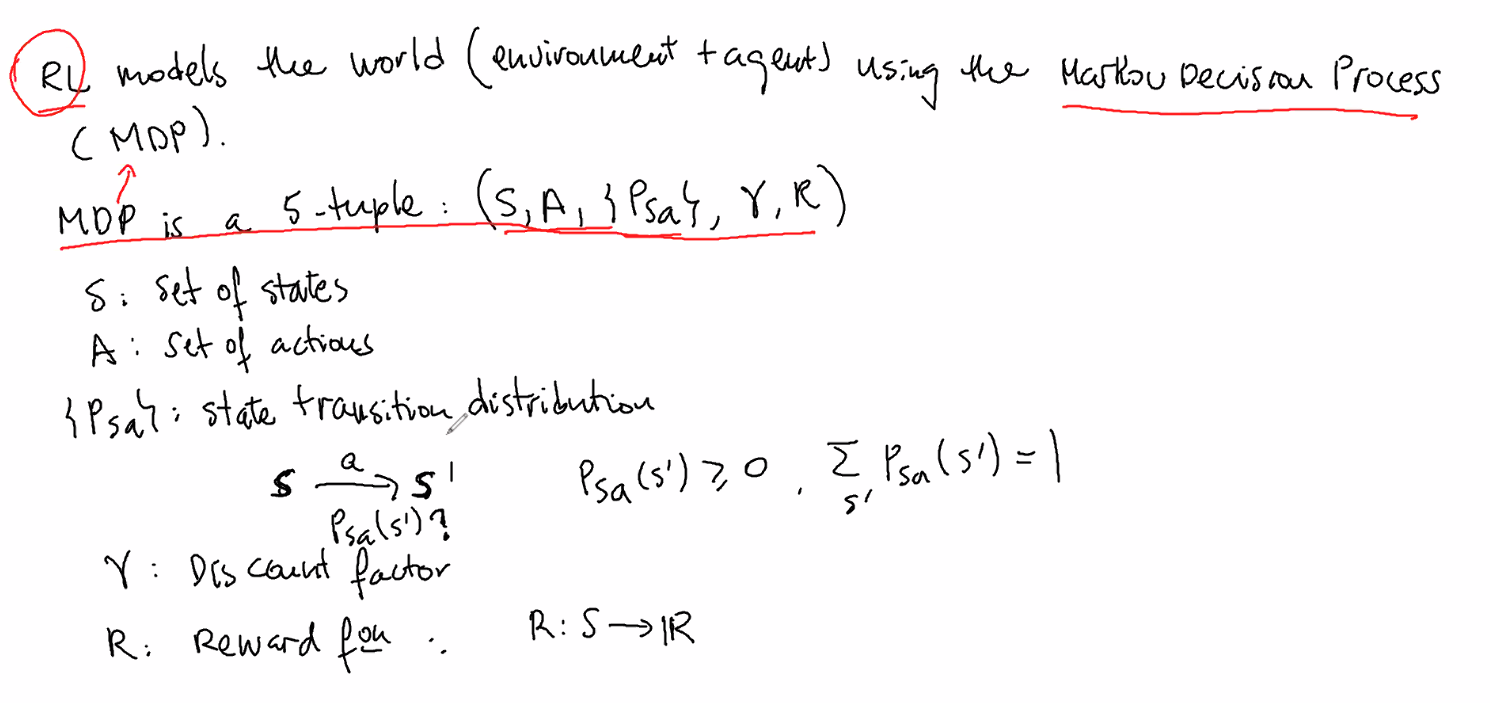 RL models the world (environment + agent) using the Markov Decision Process
(MDP).
MDP is a 5-tuple: (S, A, {Psa}, γ, R)
S: set of states
A: set of actions
{Psa}: state transition distribution
s →a s' Psa(s') ≥ 0, Σs' Psa(s') = 1
Psa(s')?
γ: Discount factor
R: Reward fon. R: S → ℝ